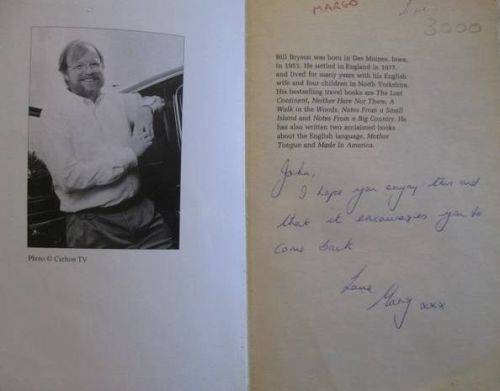 MARGO
3000
Bill Bryson was born in Des Moines, Iowa,
in 1951. He settled in England in 1977,
and lived for many years with his English
wife and four children in North Yorkshire.
His bestselling travel books are The Lost
Continent, Neither Here Nor There, A
Walk in the Woods, Notes From a Small
Island and Notes From a Big Country. He
has also written two acclaimed books
about the English language, Mother
Tongue and Made In America.
John,
I hope you enjoy this and
that it encourages you to
come back
Love
xxx
Photo © Carlton TV